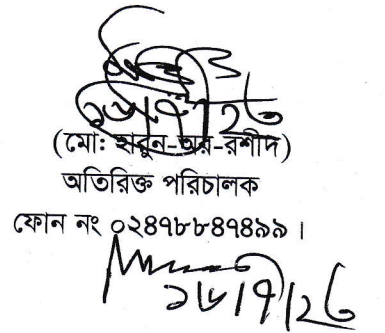 ১৬।৭।২৬
(মো: হারুন-অর-রশীদ)
অতিরিক্ত পরিচালক
ফোন নং ০২৪৭৮৮৪৭৪৯৯।
১৬।৭।২৬